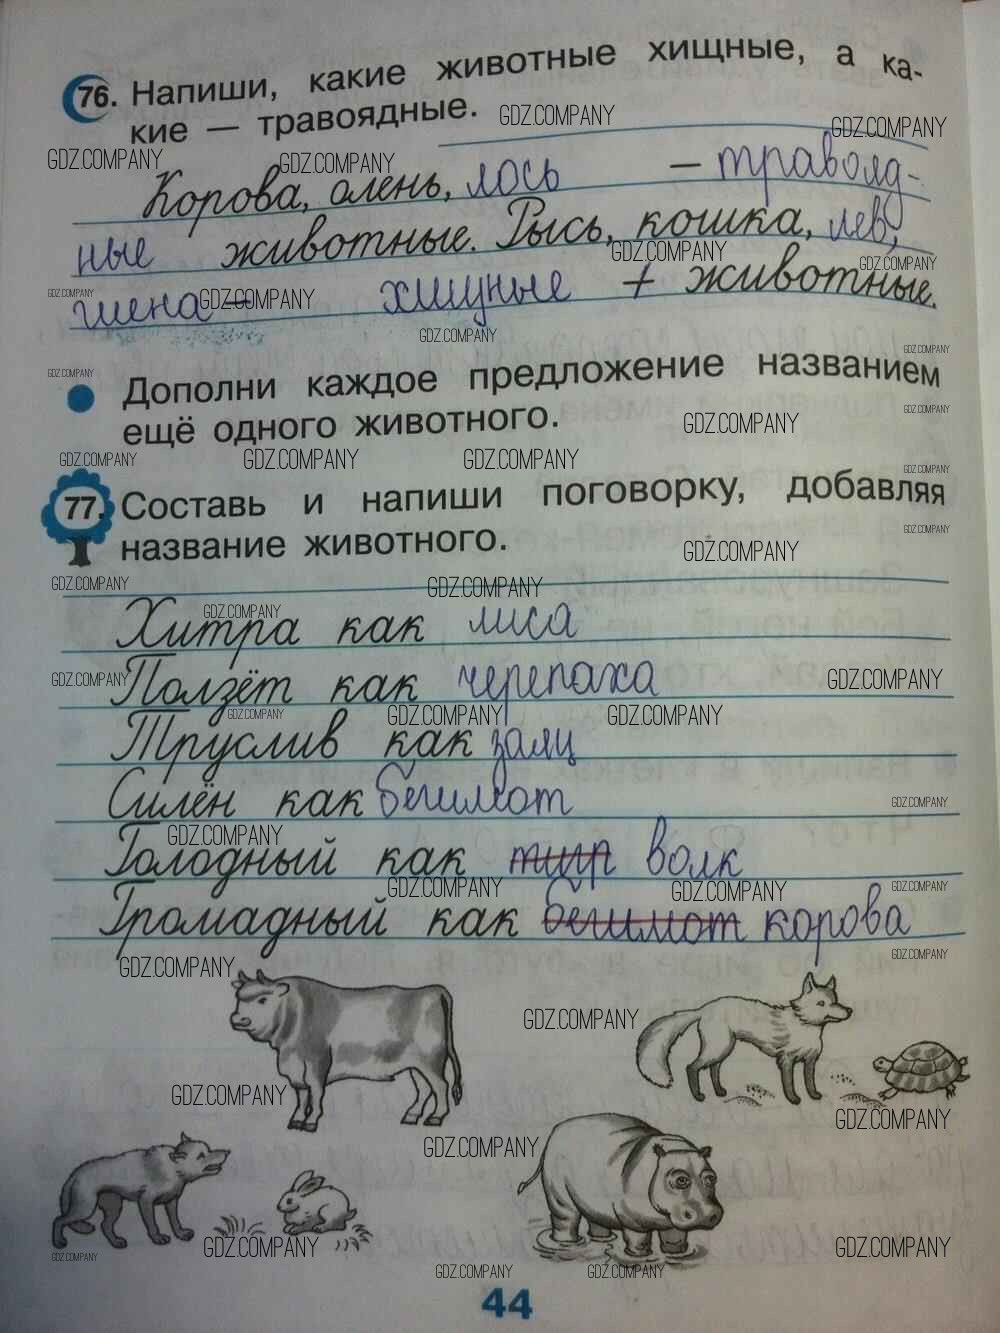 76. Напиши, какие животные хищные, а ка-
кие — травоядные.
Корова, олень, лось — травояд-
ные животные. Рысь, кошка, лев,
гиена – хищные + животные.
Дополни каждое предложение названием
ещё одного животного.
77. Составь и напиши поговорку, добавляя
название животного.
Хитра как лиса
Ползёт как черепаха
Труслив как заяц
Силён как бегимот
Голодный как тигр волк
Громадный как бегимот корова
44
GDZ.COMPANY